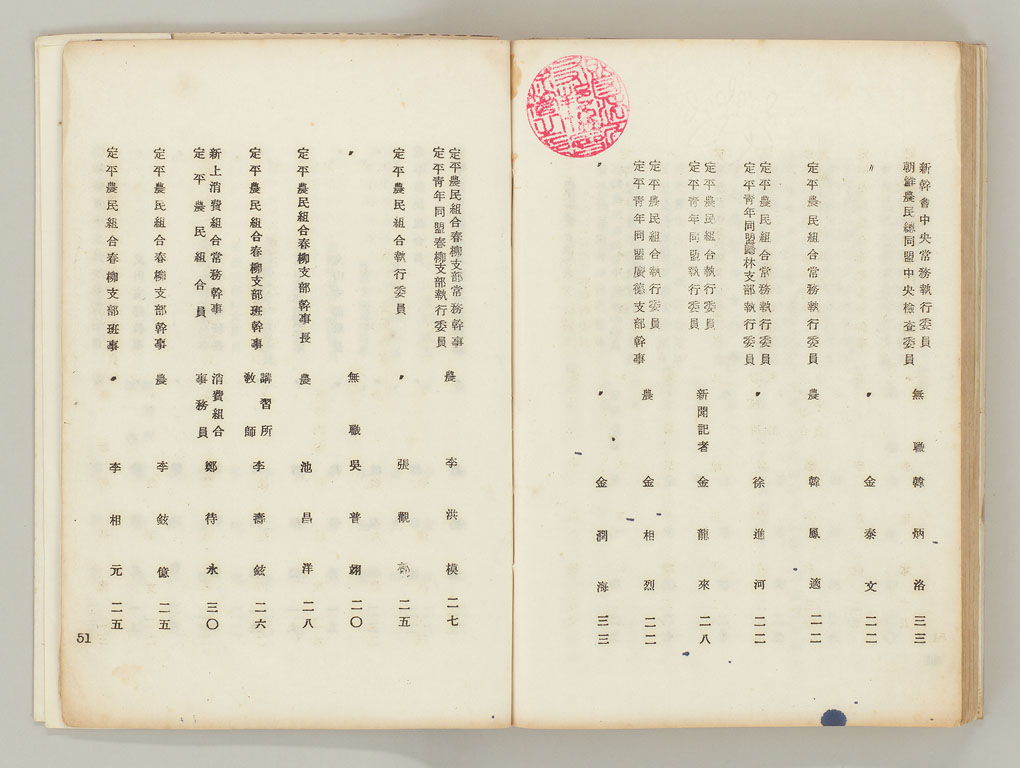 新幹會中央常務執行委員
朝鮮農民總同盟中央檢査委員
無職 韓炳洛 三三
〃 〃 金泰文 二二
定平農民組合常務執行委員 農 韓鳳適 二二
定平農民組合常務執行委員
定平靑年同盟歸林支部執行委員 〃 徐進河 二二
定平農民組合執行委員
定平靑年同盟執行委員
新聞記者 金龍來 二八
定平農民組合執行委員
定平靑年同盟廣德支部幹事 農 金相烈 二二
〃 〃 金潤海 三三
定平農民組合春柳支部常務幹事
定平靑年同盟春柳支部執行委員
農 李洪模 二七
定平農民組合執行委員 〃 張觀 二五
〃 無職 吳普翊 二〇
定平農民組合春柳支部幹事長 農 池昌洋 二八
定平農民組合春柳支部班幹事 講習所
敎師 李壽鉉 二六
新上消費組合常務幹事
定平農民組合員
消費組合
事務員
鄭待永 三〇
定平農民組合春柳支部幹事 農 李鉉億 二五
定平農民組合春柳支部班事 〃 李相元 二五
51